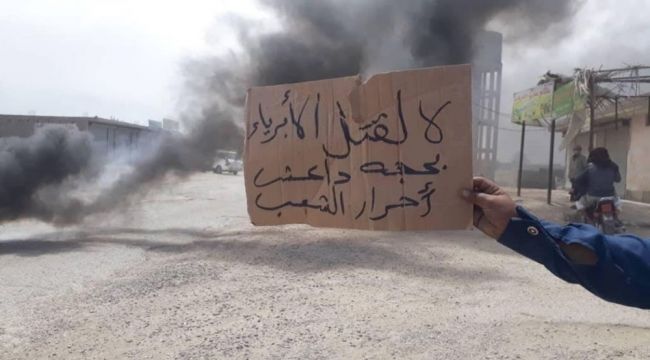 لا لقتل الأبرياء
بحجه داعش
أحرار الشعب